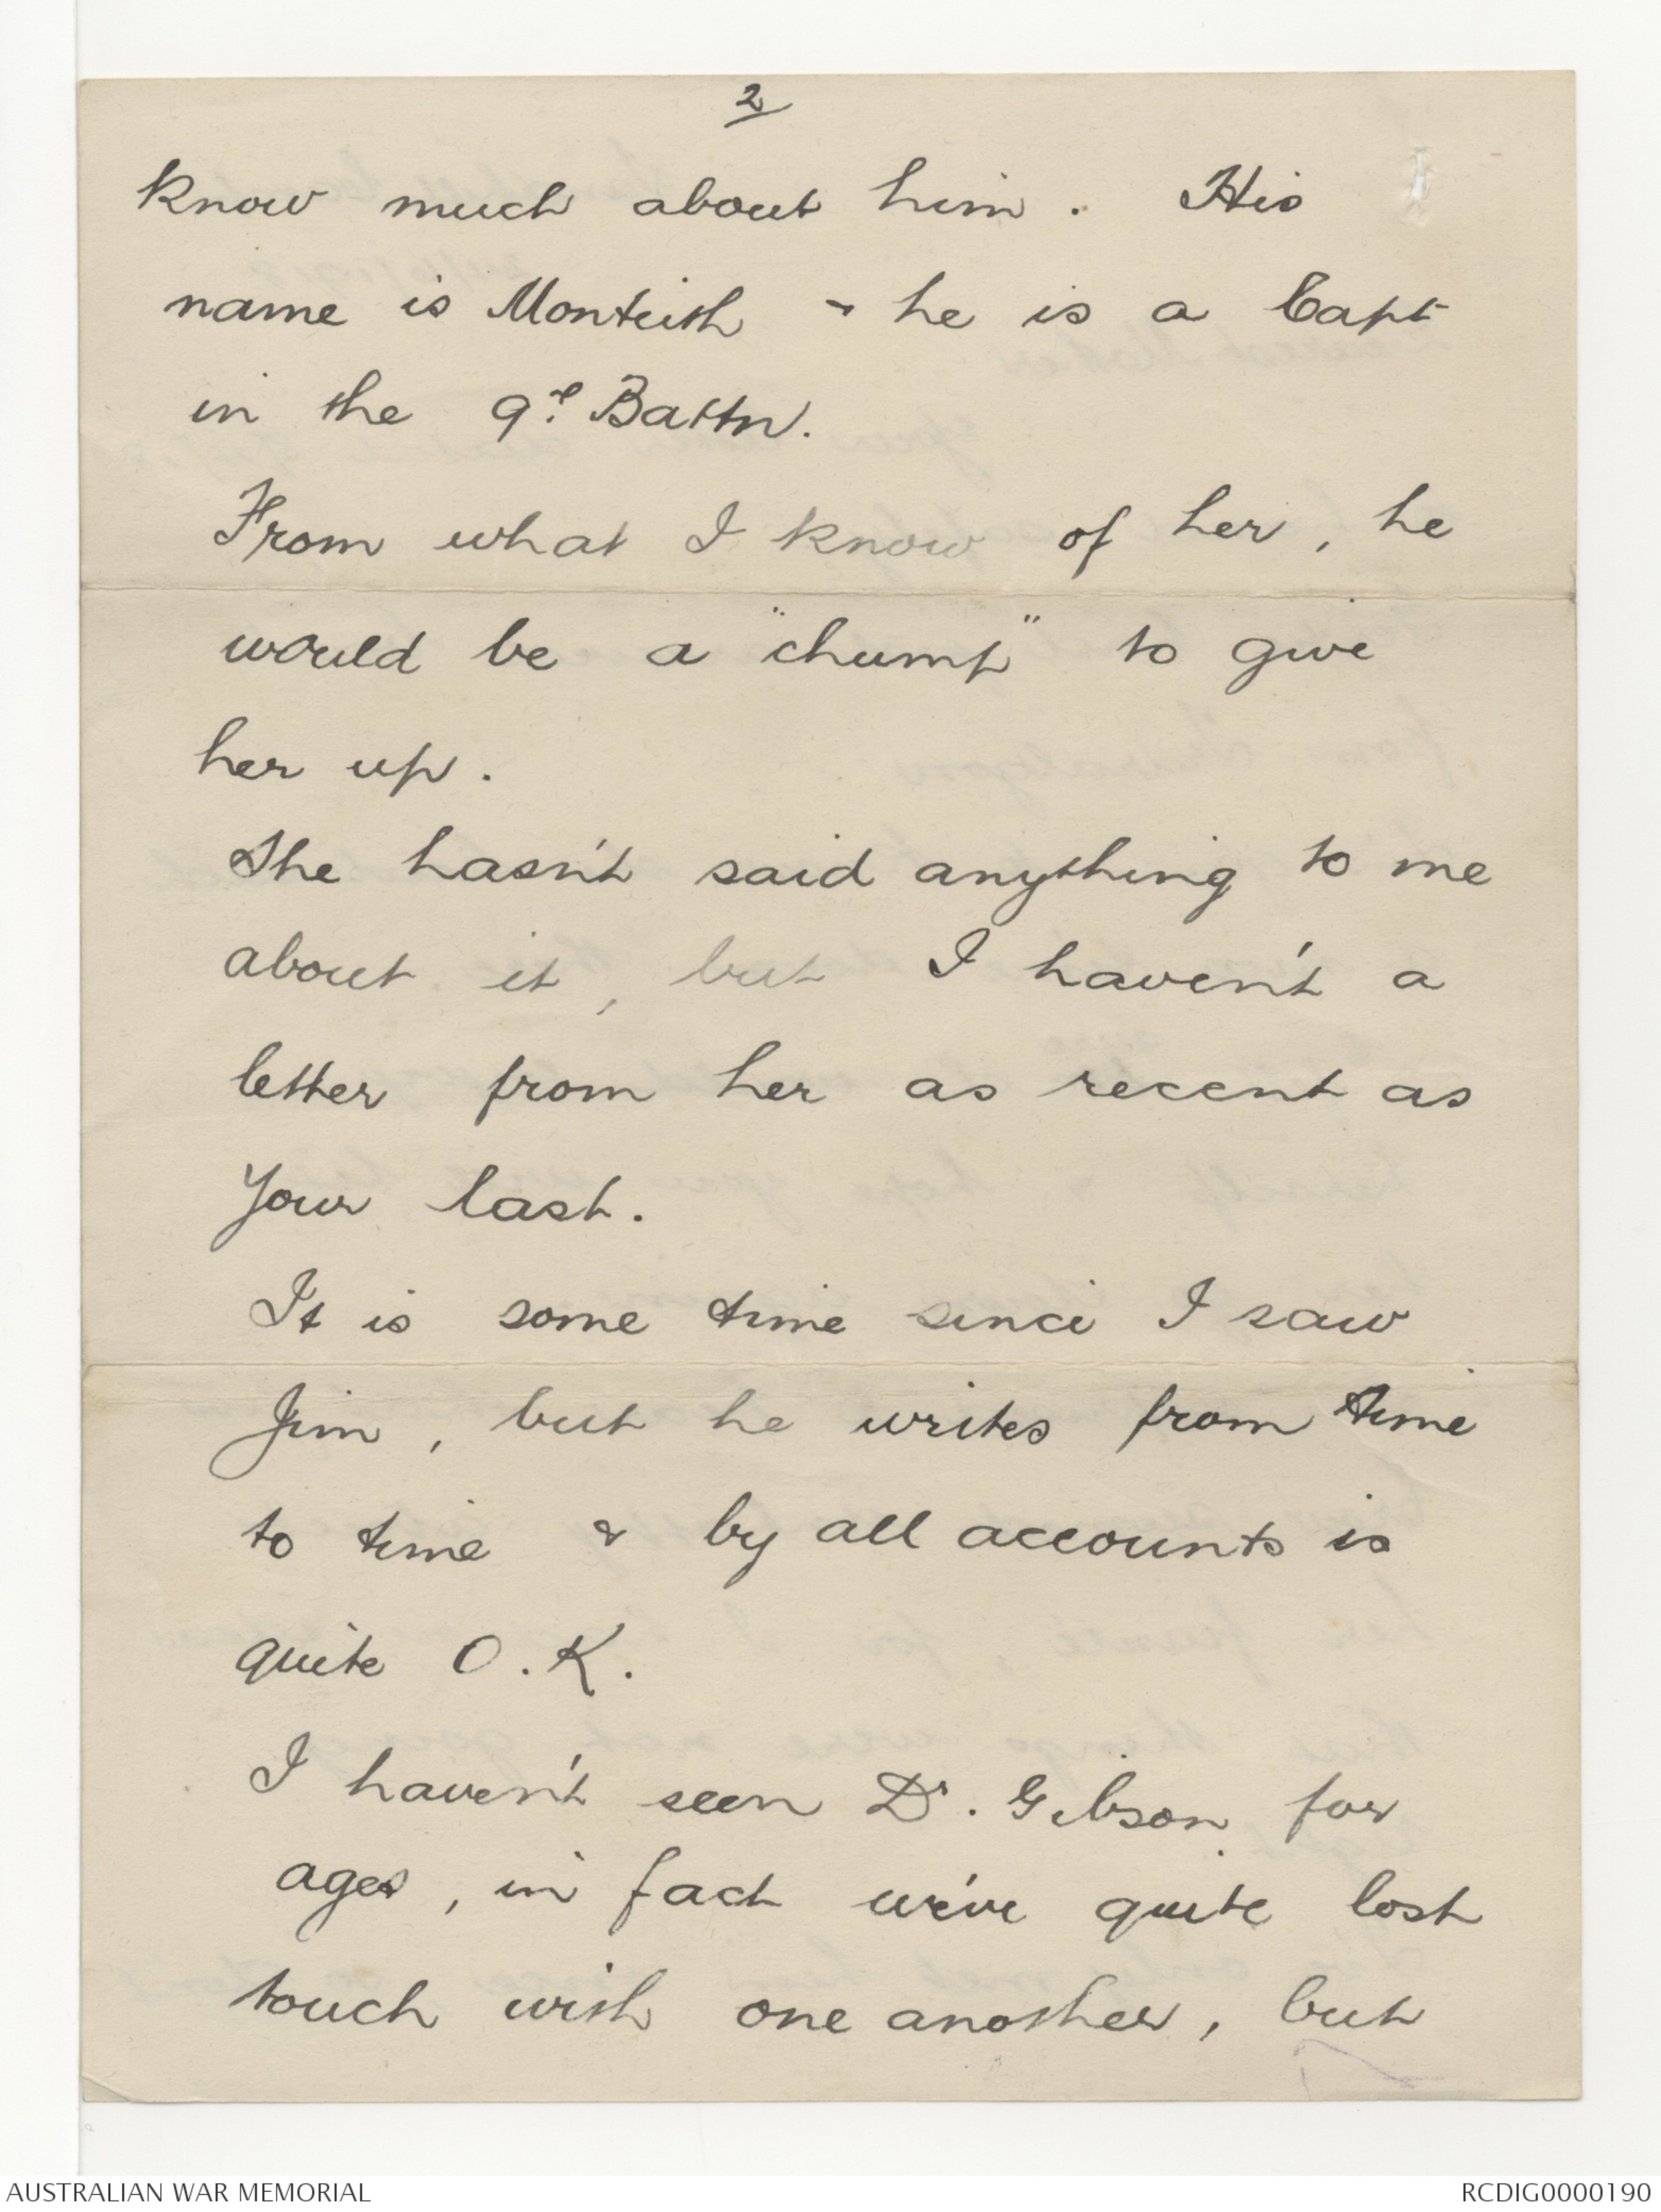 2
know much about him. His
name is Monteith & he is a Capt
in the 9th Battn.
From what I know of her, he
would be a "chump" to give
her up.
She hasn't said anything to me
about it, but I haven't a
letter from her as recent as
your last.
It is some time since I saw
Jim, but he writes from time
to time & by all accounts is
quite O.K.
I haven't seen Dr. Gibson for
ages, in fact we've quite lost
touch with one another, but
AUSTRALIAN WAR MEMORIAL
RCDIG0000190